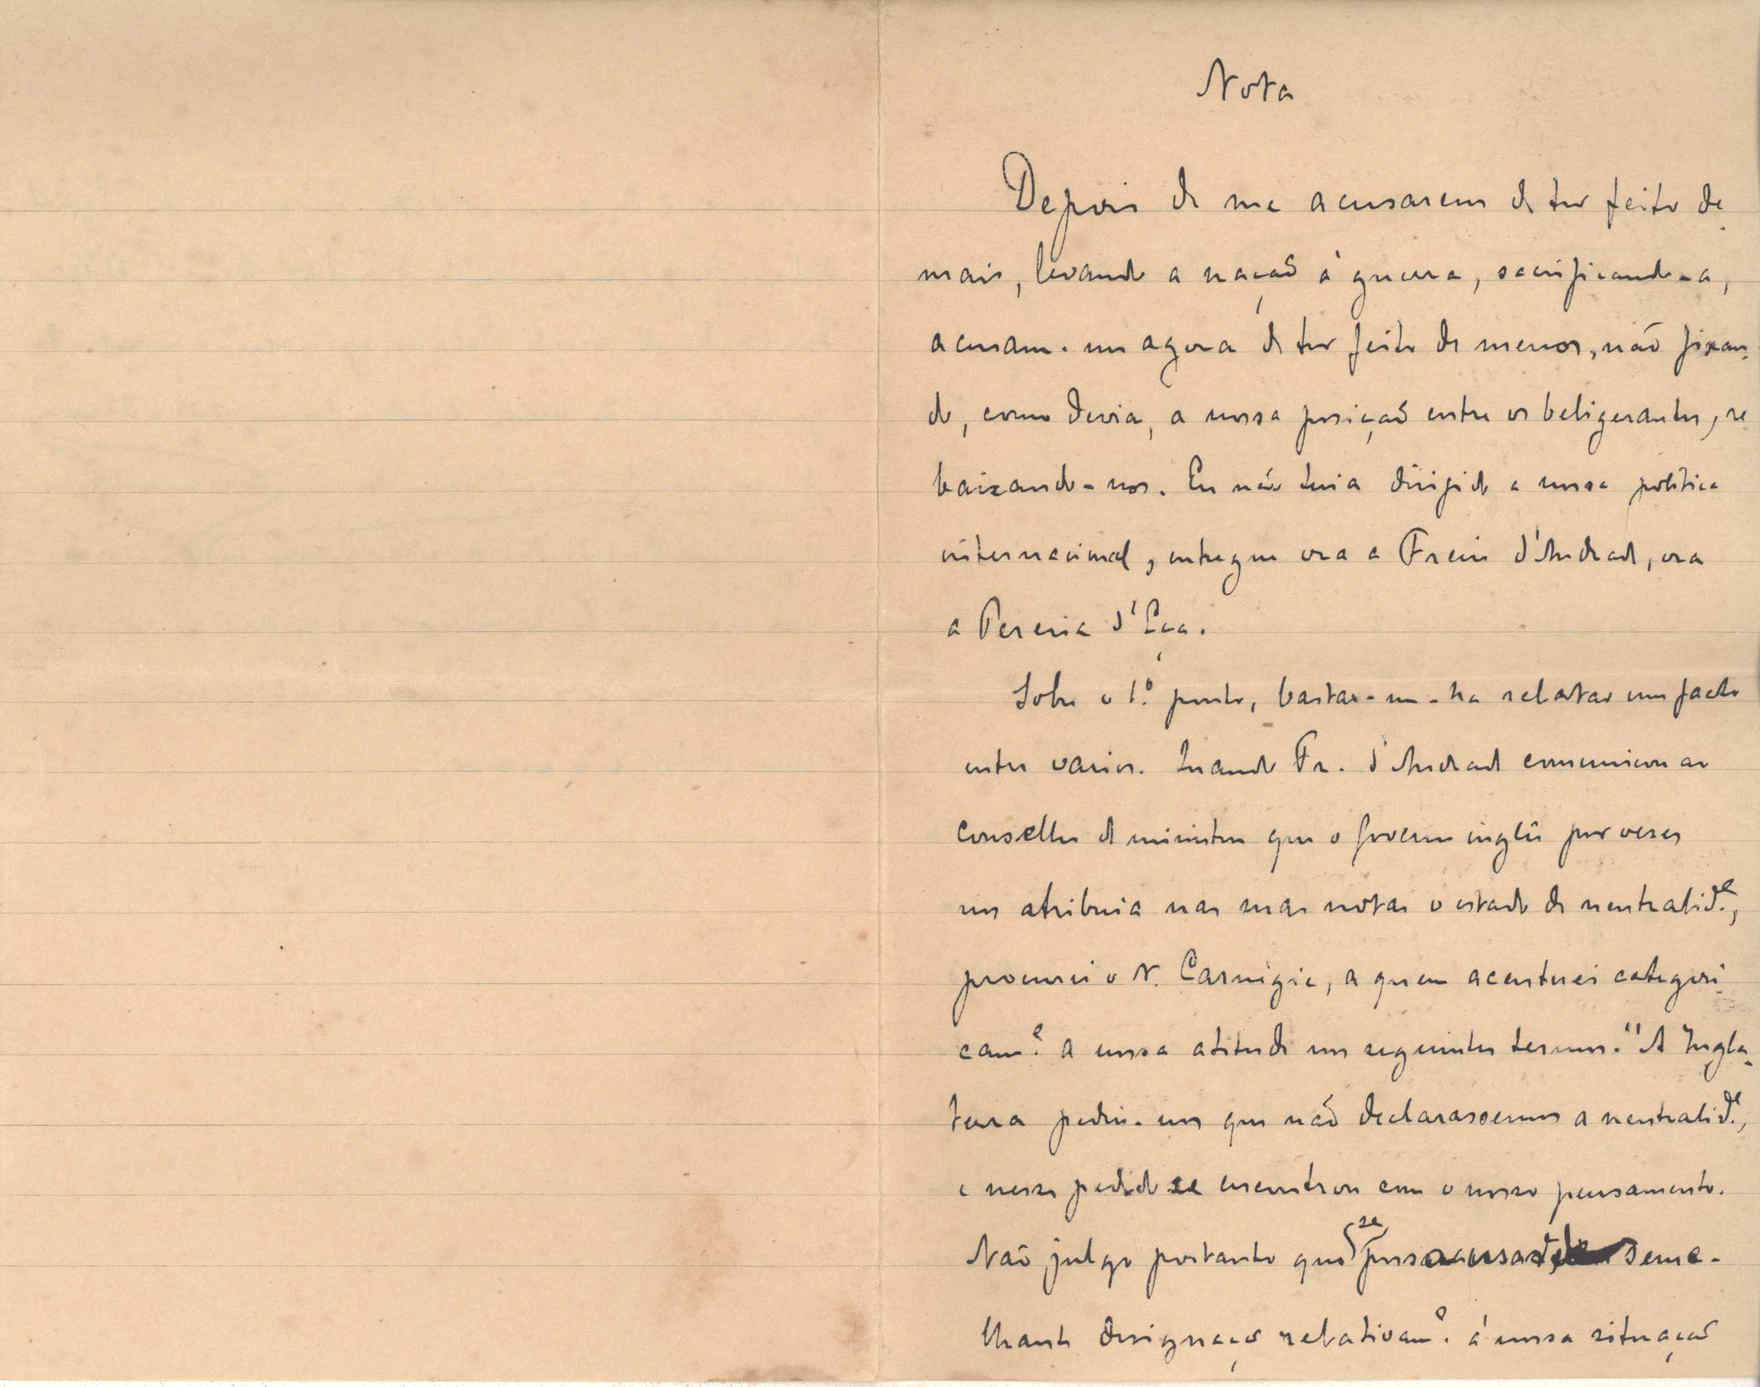 Nota
Depois de me acusarem de ter feito de
mais, levando a nação á guerra, sacrificando-a,
acusam-me agora de ter feito de menos, não fixan-
do, como devia, a nossa posição entre os beligerantes, re
baixando-nos. Eu não teria dirigido a nossa politica
internacional, entregue ora a Freire d'Andrade, ora
a Pereira d'Eça.
Sobre o 1.º ponto, bastar-me-ha relatar um facto
entre varios. Quando Fr. d'Andrade comunicou ao
conselho de ministros que o Governo inglês por vezes
nos atribuia nas suas notas o estado de neutralid.e,
procurei o N. Carnigie, a quem acentuei categori-
cam.e a nossa atitude nos seguintes termos. "A Ingla-
terra pediu-nos que não declarassemos a neutralid.e,
e nesse pedido se encontrou com o nosso pensamento.
Não julgo portanto que se possa usar de seme-
lhante designação relativam.e á nossa situação